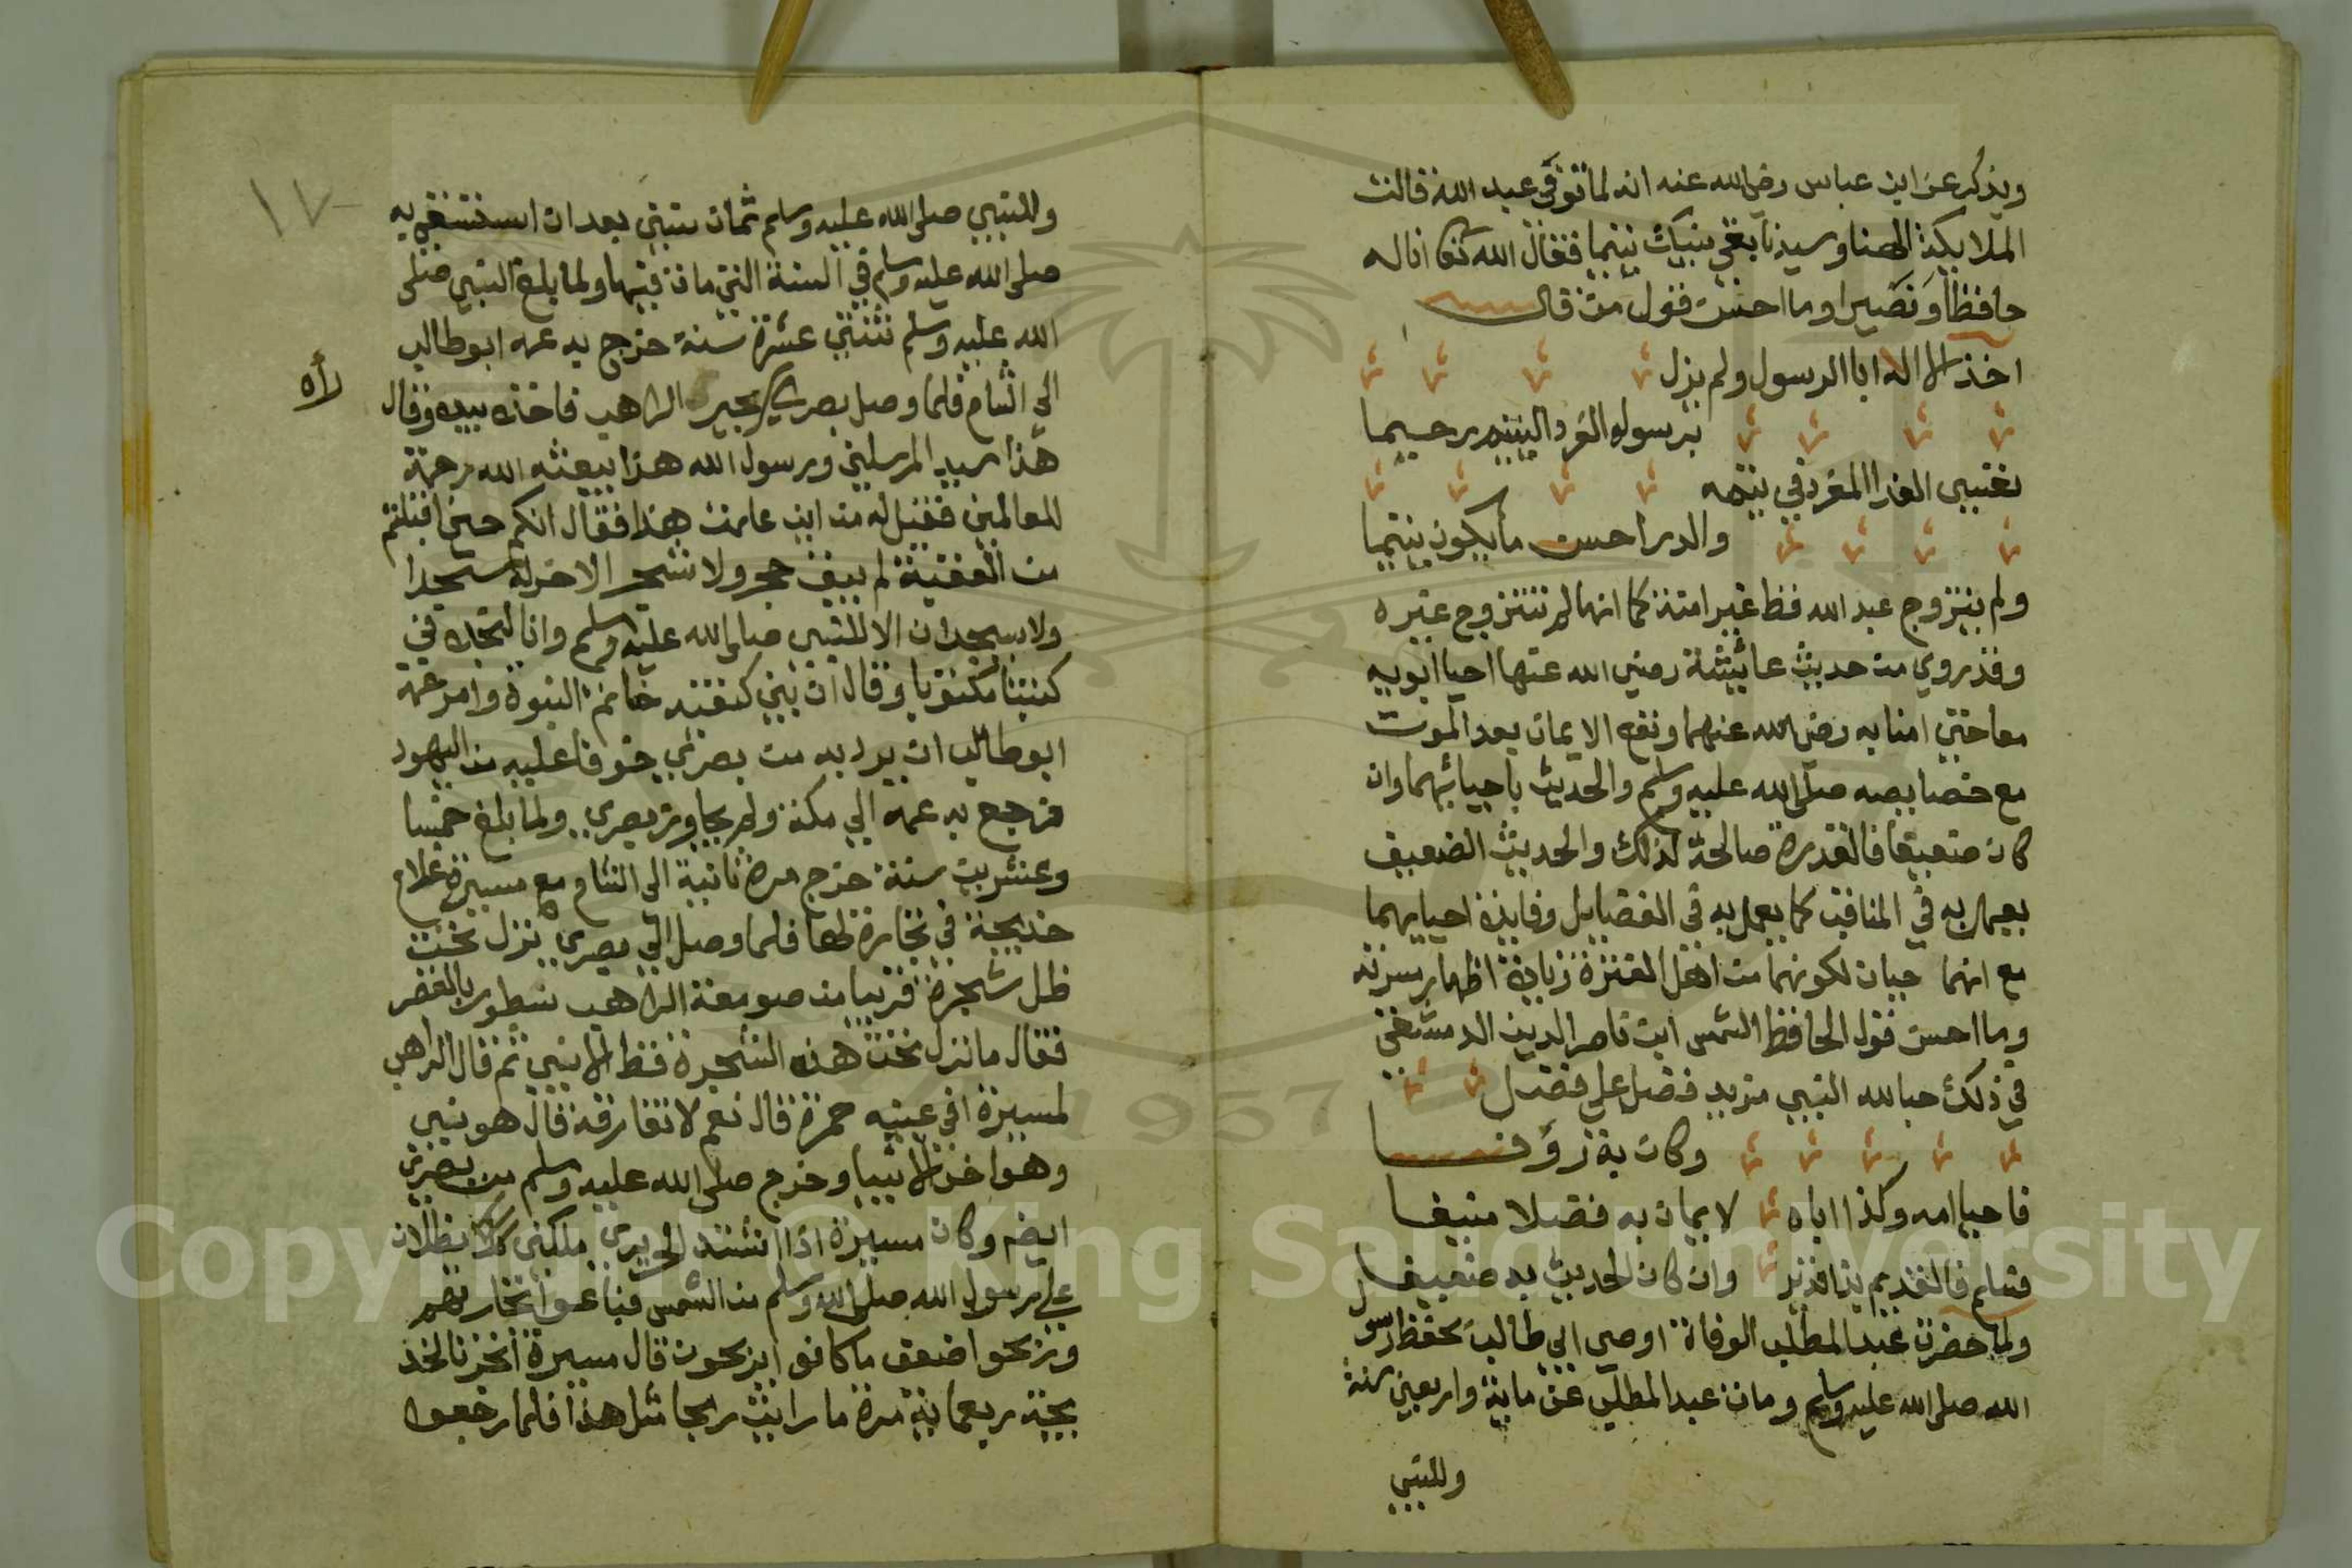 ويذكر عن ابن عباس رضي الله عنه انه لما توفى عبد الله قالت
الملايكة الهنا وسيدنا بقي نبيك يتيما فقال الله تعا انا له
حافظا ونصيرا وما احسن قول من قال
اخذ الاله ابا الرسول ولم يزل
برسوله الفرد اليتيم رحيما
نفسي الفدا المفرد في يتمه
والدر احسن ما يكون يتيما
ولم يتزوج عبد الله قط غير امنة كما انها لم تتزوج غيره
وقد روي من حديث عائيشة رضي الله عنها احيا ابويه
معا حتي امنا به رضي الله عنهما ونفع الايمان بعد الموت
مع خصايصه صلى الله عليه وسلم والحديث باحيائهما وان
كان ضعيفا فالقدرة صالحة لذلك والحديث الضعيف
يعمل به في المناقب كما يعمل به في الفضايل وفايدة احيايهما
مع انهما جيان لكونهما من اهل الفترة زيادة اظهار
وما احسن قول الحافظ الشمس ابن ناصر الدين الدمشقي
في ذلك حبا الله النبي مزيد فضل على فضل
وكان به رؤفا
فاحيا امه وكذا اباه لايمان به فضلا منيفا
فسلم فالقديم بذا قدير وان كان الحديث به ضعيفا
ولما حضرت عبد المطلب الوفاة اوصى ابي طالب بحفظ رسول
الله صلى الله عليه وسلم ومات عبد المطلب عن ماية واربعين سنة
وللنبي
١٧
وللنبي صلى الله عليه وسلم ثمان سنين بعد ان استسقي به
صلى الله عليه وسلم في السنة التي مات فيها ولما بلغ النبي صلى
الله عليه وسلم ثنتي عشرة سنة خرج به عمه ابو طالب
الى الشام فلما وصل بصرى بحير الراهب فاخذه بيده وقال
راه
هذا سيد المرسلين ورسول الله هذا يبعثه الله رحمة
للعالمين فقيل له من اين علمت هذا فقال انكم حين اقبلتم
من العقبة لم يبق حجر ولا شجر الا خر له سجدا
ولا يسجدان الا للنبي صلى الله عليه وسلم وانا لنجده في
كتبنا مكتوبا وقال ان بين كتفيه خاتم النبوة وامر عمه
ابو طالب ان يرد به من بصرى خوفا عليه من اليهود
فرجع به عمه الي مكة ولم يجاوز بصرى ولما بلغ خمسا
وعشرين سنة خرج مرة ثانية الى الشام مع ميسرة غلام
خديجة في تجارة لها فلما وصل الي بصرى نزل تحت
ظل شجرة قريبا من صومعة الراهب نسطور بالقصر
فقال ما نزل تحت هذه الشجرة قط الا نبي ثم قال الراهب
لميسرة افي عينيه حمرة قال نعم لا تفارقه قال هو نبي
وهو اخر الانبيا وخرج صلى الله عليه وسلم من بصرى
ايضم وكان ميسرة اذا اشتد الحر يرى ملكين يظللان
على رسول الله صلى الله وسلم من الشمس فباعوا تجارتهم
وربحوا ضعف ما كانوا يربحون قال ميسرة اتجرنا لخد
يجة ربعماية مرة ما رايت ربحا مثل هذا فلما رجعوا
Copyright © King Saud University
1957